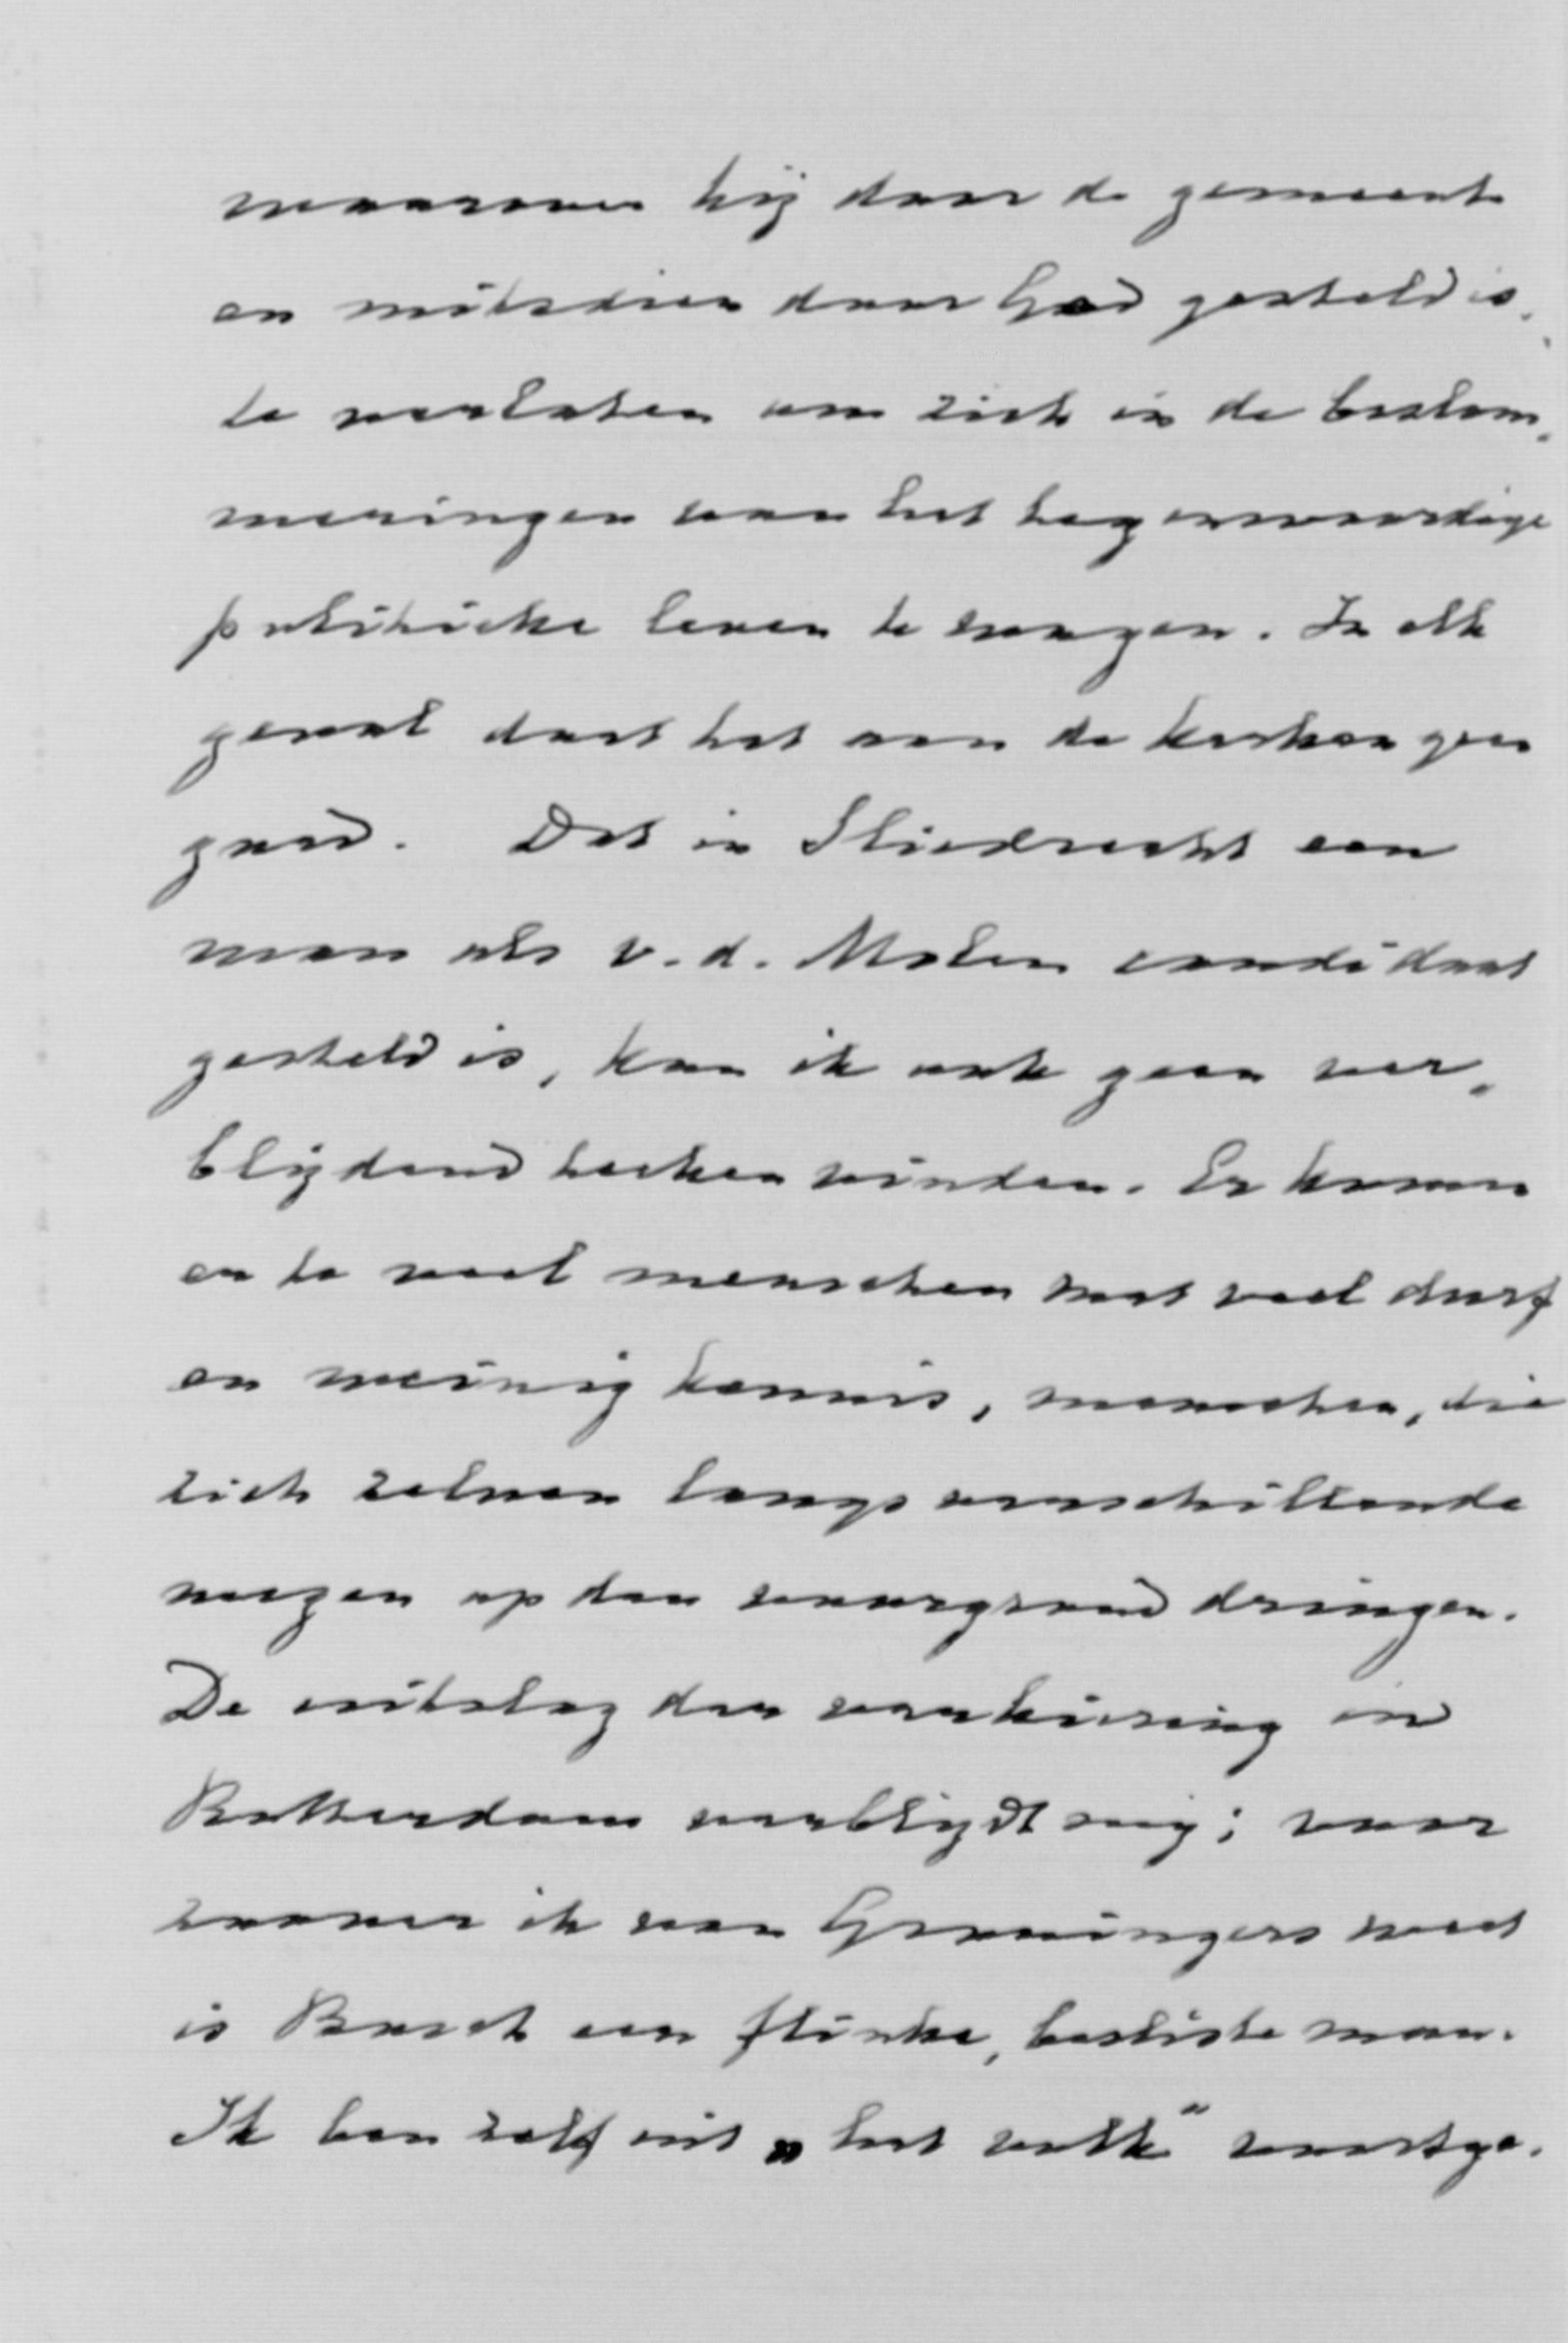 waarover hij door de gemeente
en mitsdien door God gesteld is,
te verlaten om zich in de beslom„
meringen van het tegenwoordige
politieke leven te mengen. In elk
geval doet het aan de kerken geen
goed. Dat in Sliedrecht een
man als v. d. Molen candidaat
gesteld is, kan ik ook geen ver„
blijdend teeken vinden. Er komen
er te veel menschen met veel durf
en weinig kennis, menschen, die
zich zelven langs verschillende
wegen op den voorgrond dringen.
De uitslag der verkiezing in
Rotterdam verblijdt mij; voor
zoover ik van Groningers weet
is Brusch een flinke, besliste man.
Ik ben zelf uit „het volk” voortge„